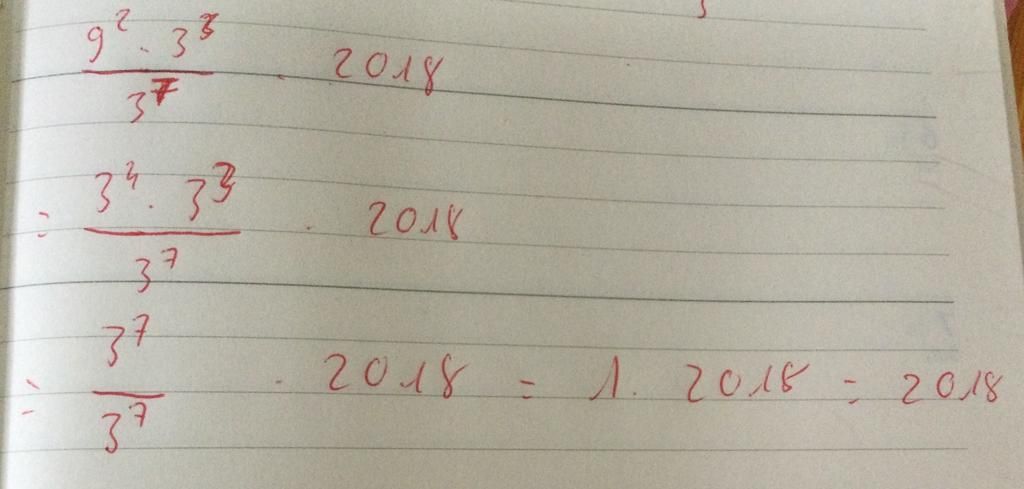 9² · 3³
/ 3⁷ · 2018
= 3⁴ · 3³ / 3⁷ · 2018
= 3⁷ / 3⁷ · 2018 = 1 · 2018 = 2018